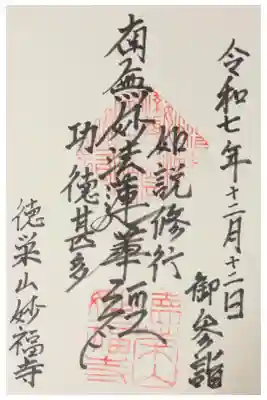 令和七年十二月十二日
御参詣
如説修行
南無妙法蓮華経
功徳甚多
徳栄山妙福寺